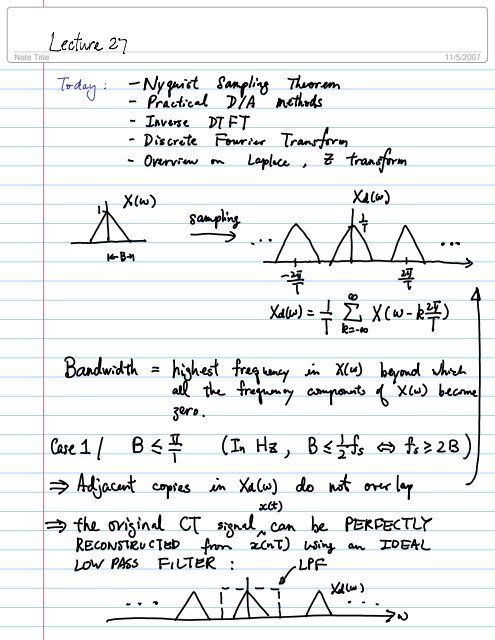 Lecture 27
Note Title
11/5/2007
Today: - Nyquist Sampling Theorem
- Practical D/A methods
- Inverse DTFT
- Discrete Fourier Transform
- Overview on Laplace, Z transform
X(ω)
1
←B→
sampling
Xd(ω)
1/T
...
...
-2π/T
2π/T
Xd(ω) = 1/T ∑ k=-∞ ∞ X(ω - k 2π/T)
Bandwidth = highest frequency in X(ω) beyond which
all the frequency components of X(ω) become
zero.
Case 1 / B ≤ π/T (In Hz, B ≤ ½ fs ⇔ fs ≥ 2B)
⇒ Adjacent copies in Xd(ω) do not overlap
⇒ the original CT signal x(t) can be PERFECTLY
RECONSTRUCTED from x(nT) using an IDEAL
LOW PASS FILTER:
LPF
Xd(ω)
...
...
ω